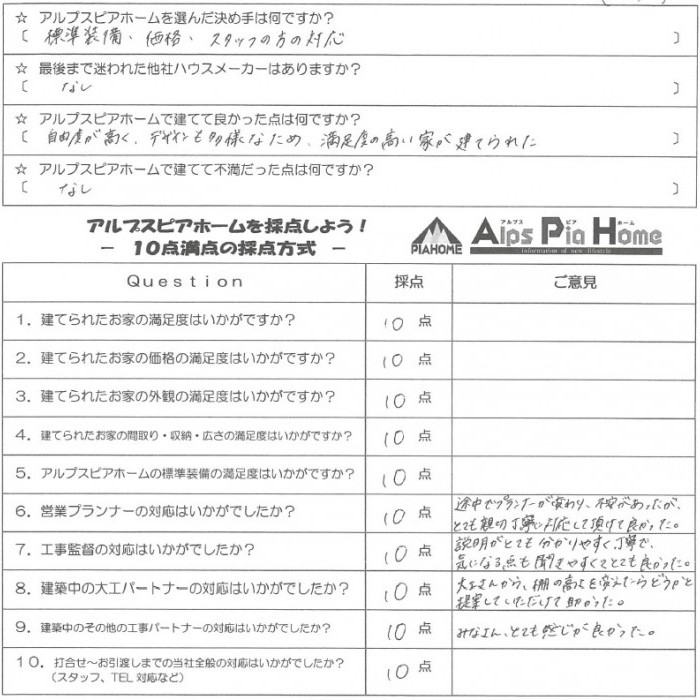 ☆ アルプスピアホームを選んだ決め手は何ですか?
〔 標準装備、価格、スタッフの方の対応 〕
☆ 最後まで迷われた他社ハウスメーカーはありますか?
〔 なし 〕
☆ アルプスピアホームで建てて良かった点は何ですか?
〔 自由度が高く、デザインも多様なため、満足度の高い家が建てられた 〕
☆ アルプスピアホームで建てて不満だった点は何ですか?
〔 なし 〕
アルプスピアホームを採点しよう!
− 10点満点の採点方式 −
PIAHOME
アルプス ピア ホーム
Alps Pia Home
information of new lifestyle
Question 採点 ご意見
1.建てられたお家の満足度はいかがですか? 10 点
2.建てられたお家の価格の満足度はいかがですか? 10 点
3.建てられたお家の外観の満足度はいかがですか? 10 点
4.建てられたお家の間取り・収納・広さの満足度はいかがですか? 10 点
5.アルプスピアホームの標準装備の満足度はいかがですか? 10 点
6.営業プランナーの対応はいかがでしたか? 10 点
途中でプランナーが変わり、不安があったが、
とても親切丁寧に対応して頂けて良かった。
7.工事監督の対応はいかがでしたか? 10 点
説明がとても分かりやすく丁寧で、
気になる点も聞きやすくてとても良かった。
8.建築中の大工パートナーの対応はいかがでしたか? 10 点
大工さんから、棚の高さを変えたらどうかと
提案していただけて助かった。
9.建築中のその他の工事パートナーの対応はいかがでしたか? 10 点 みなさん、とても感じが良かった。
10.打合せ〜お引渡しまでの当社全般の対応はいかがでしたか?
(スタッフ、TEL対応など) 10 点